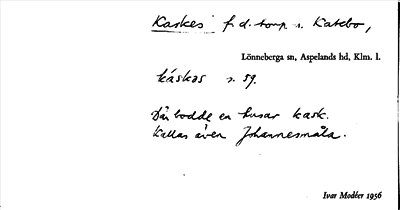 Kaskes f. d. torp s. Katebo,
Lönneberga sn, Aspelands hd, Klm. l.
káskəs s. 59.
Där bodde en husar Kask.
Kallas även Johannesmåla.
Ivar Modéer 1956